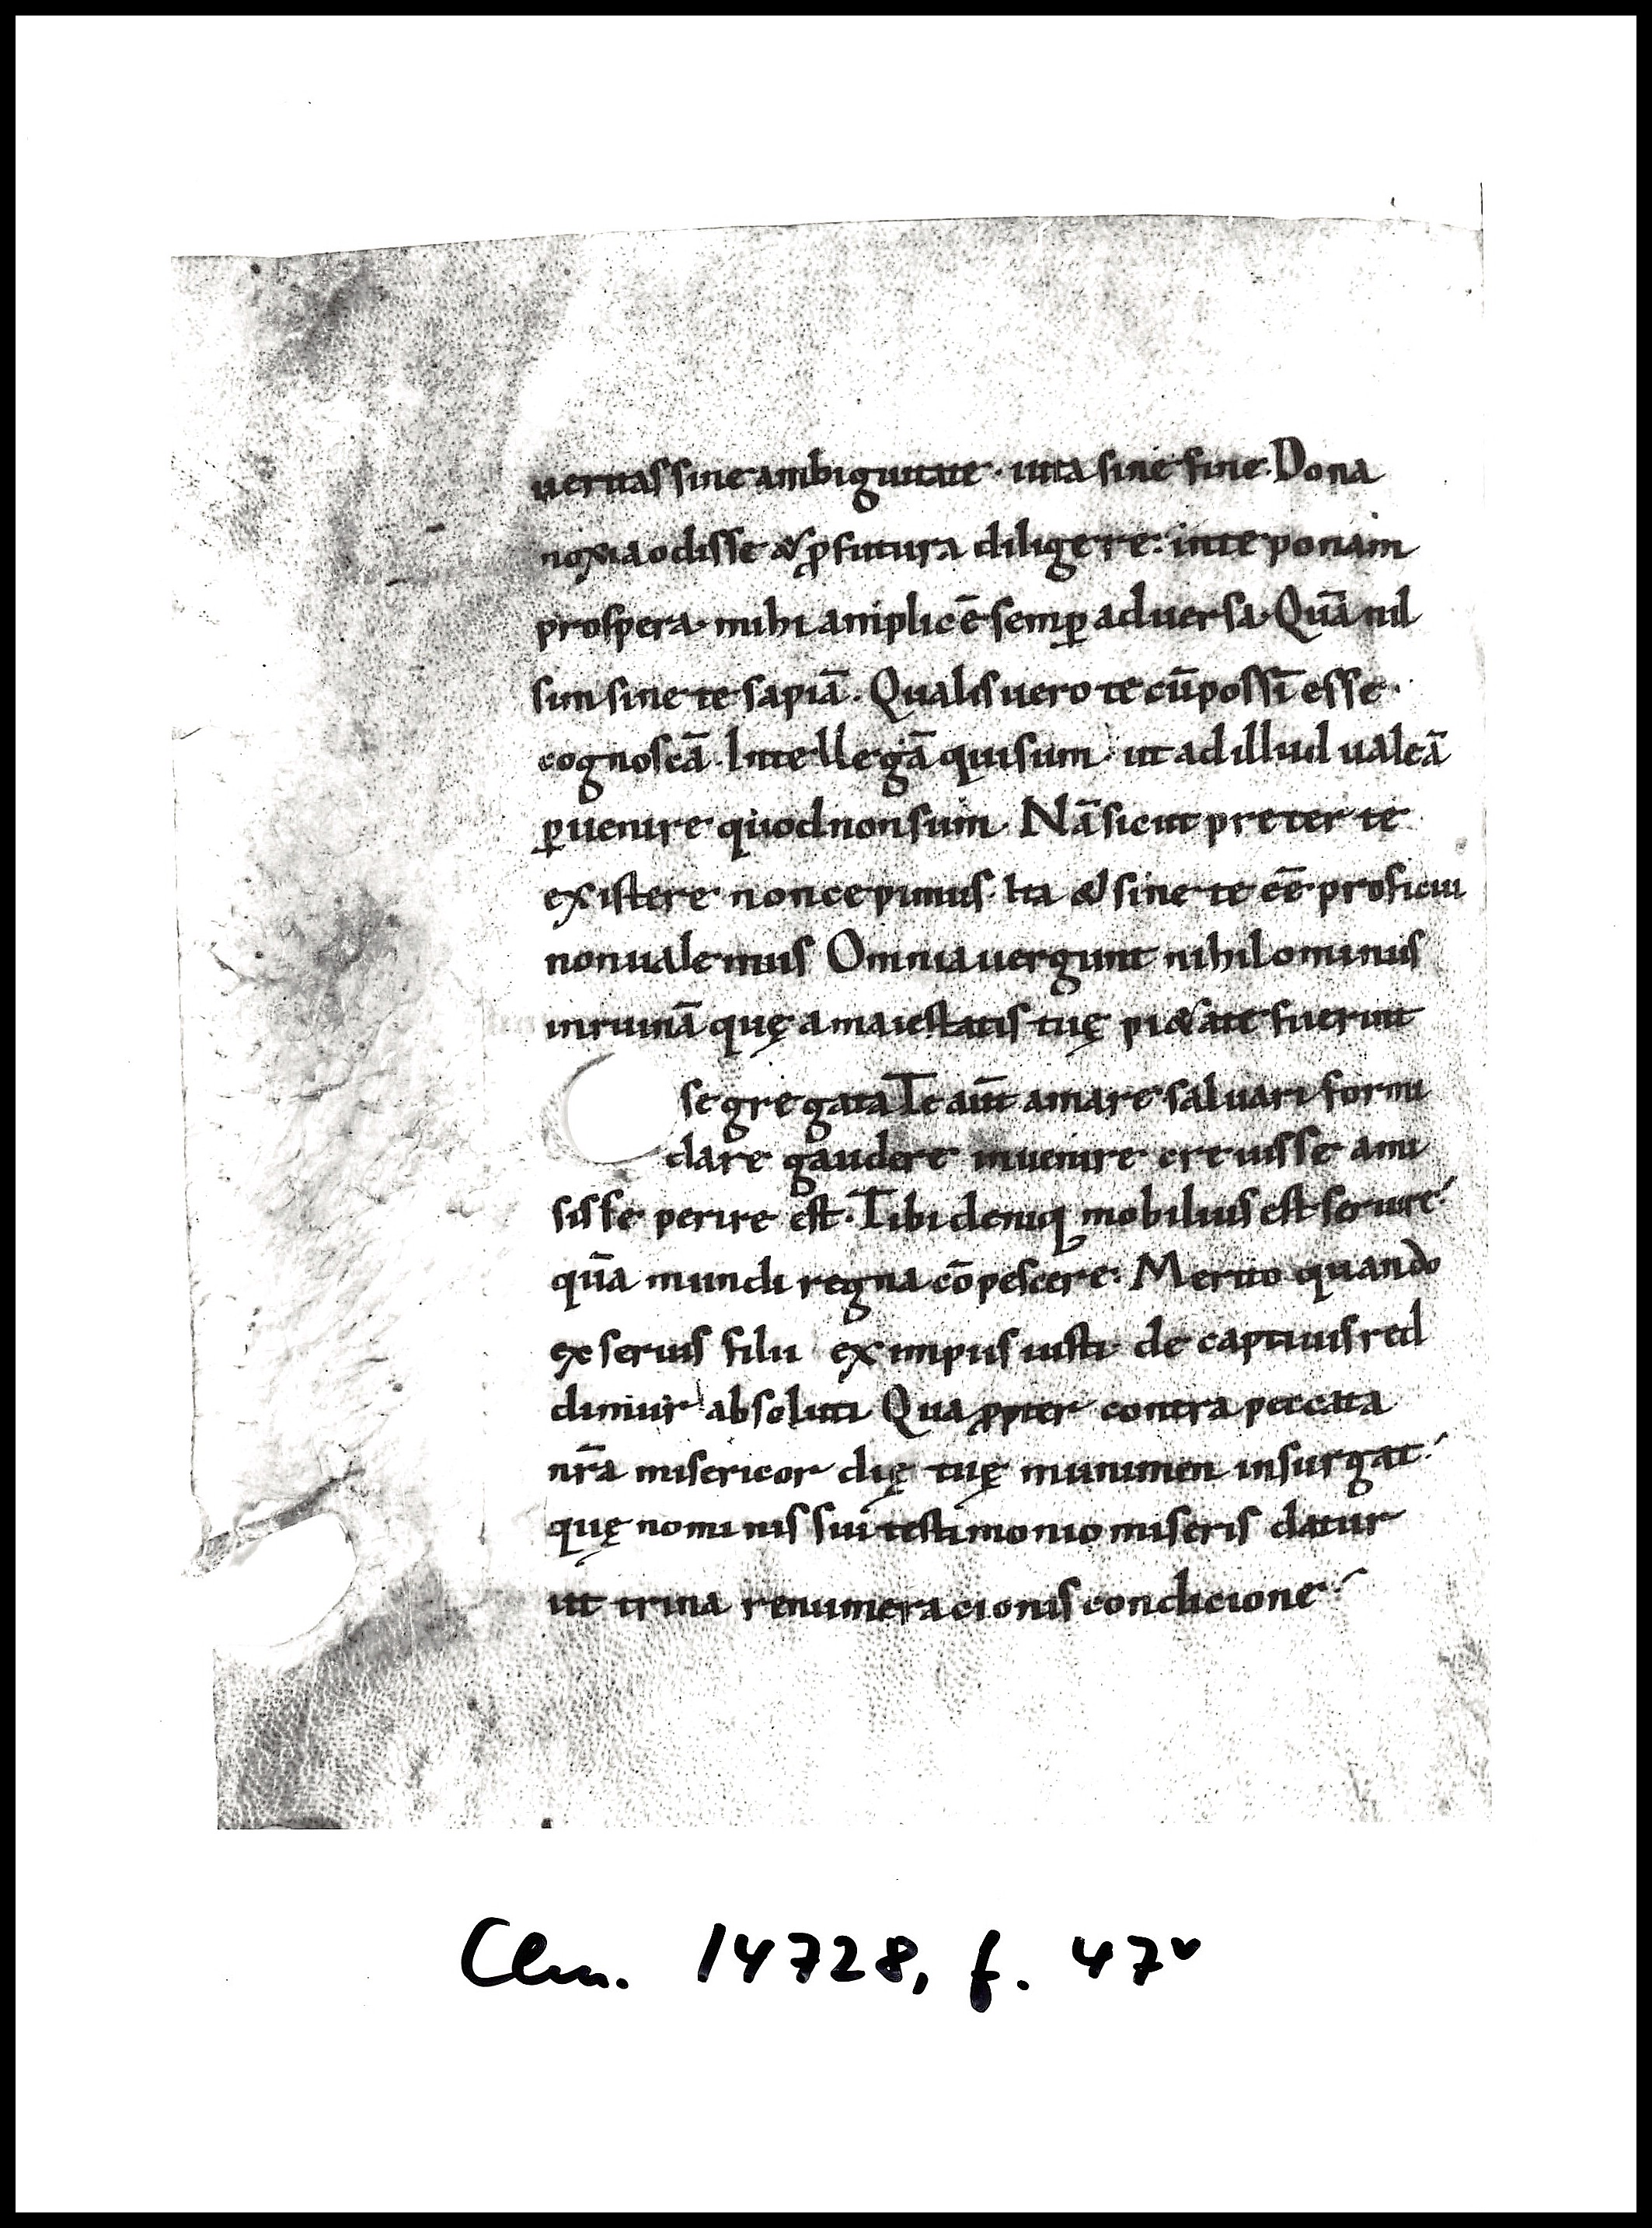 ueritas sine ambiguitate · uita sine fine · Dona
noxia odisse & ꝓfutura diligere · inte ponam
prospera · mihi amplicē semꝑ aduersa · Quā nil
sim sine te sapiā · Qualis uero te cū possī esse ·
cognoscā · Intellegā qui sum · ut ad illud ualeā
ꝑuenire quod non sum · Nā sicut preter te
existere non cepimus · Ita & sine te eē proficui
non ualemus Omnia uergunt nihilominus
in ruinā quę a maiestatis tuę pi&ate fuerint
segregata Te aūt amare saluari formi
dare gaudere inuenire creuisse ami
sisse perire est · Tibi deniq; mobilius est seruire
quā mundi regna cōpescere · Merito quando
ex seruis filii ex impiis iusti · de captiuis red
dimur absoluti Qua ꝓpter contra peccata
nr̄a misericordię tuę munimen insurgat ·
quę nominis sui testimonio miseris datur
ut trina renumeracionis condicione ·
Clm. 14728, f. 47v